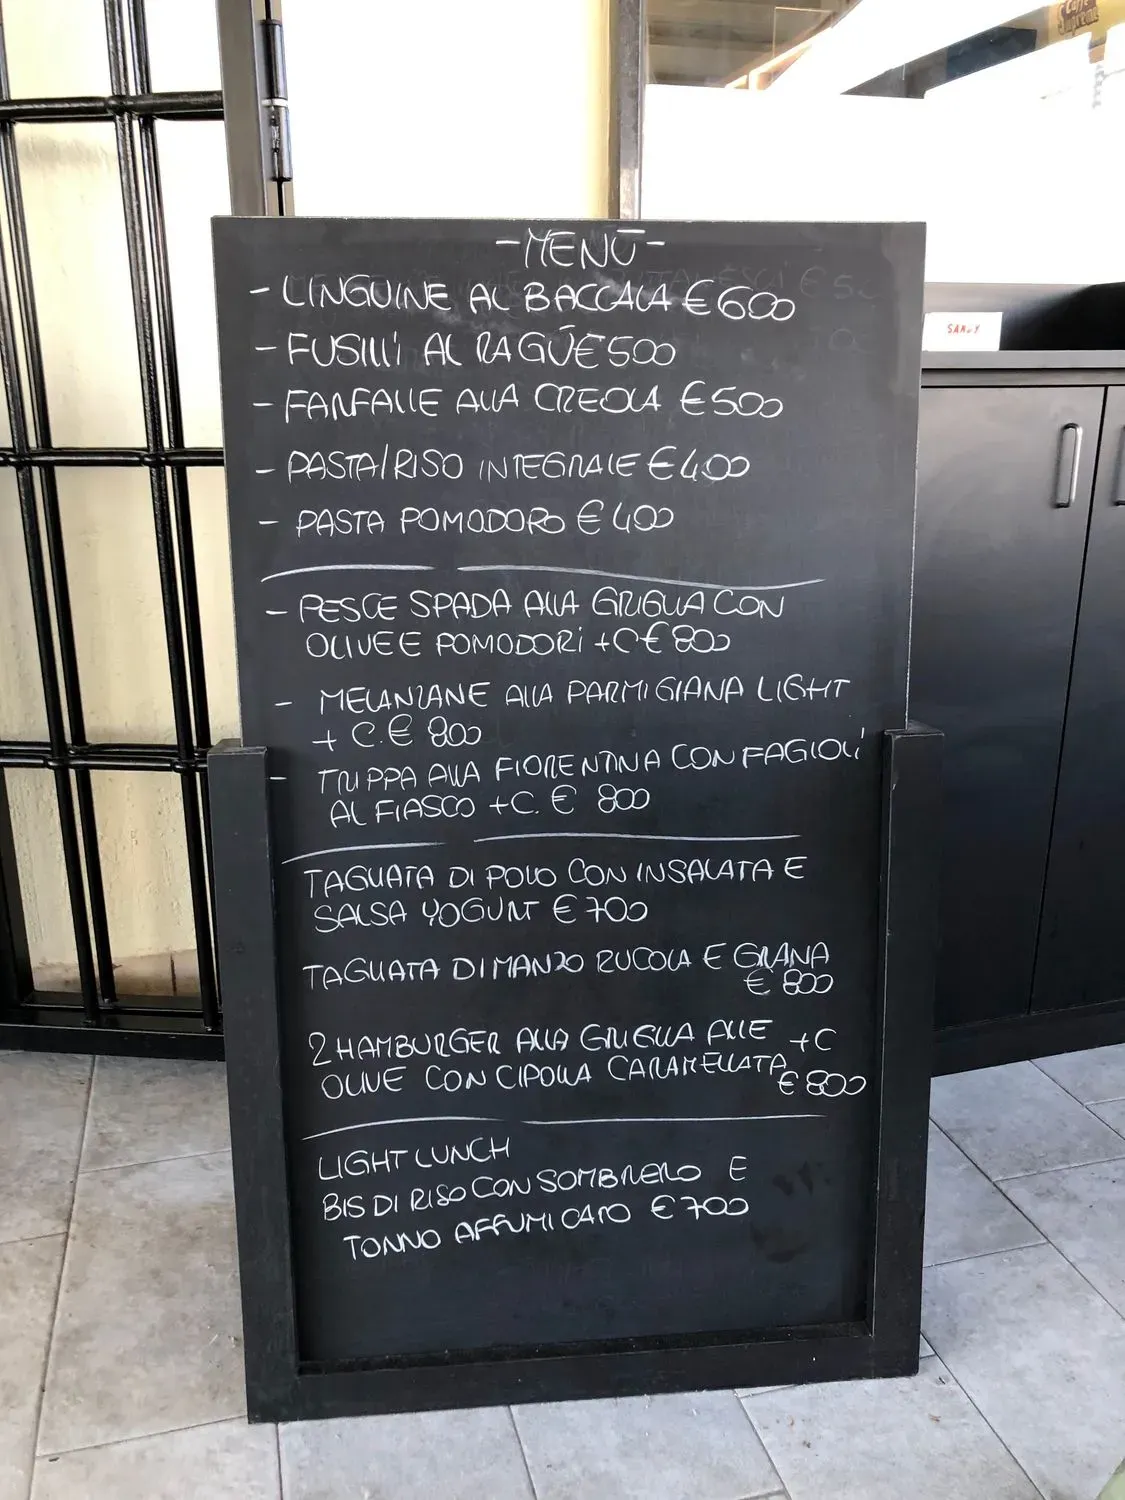 -MENÙ-
- LINGUINE AL BACCALA € 600
- FUSILLI AL RAGÙ € 500
- FARFALLE ALLA CREOLA € 500
- PASTA/RISO INTEGRALE € 400
- PASTA POMODORO € 400
- PESCE SPADA ALLA GRIGLIA CON
OLIVE E POMODORI + C € 800
- MELANZANE ALLA PARMIGIANA LIGHT
+ C. € 800
- TRIPPA ALLA FIORENTINA CON FAGIOLI
AL FIASCO + C. € 800
TAGLIATA DI POLLO CON INSALATA E
SALSA YOGURT € 700
TAGLIATA DI MANZO RUCOLA E GRANA
€ 800
2 HAMBURGER ALLA GRIGLIA ALLE + C
OLIVE CON CIPOLLA CARAMELLATA
€ 800
LIGHT LUNCH
BIS DI RISO CON SOMBRERO E
TONNO AFFUMICATO € 700
SANDY
Caffè
Supreme